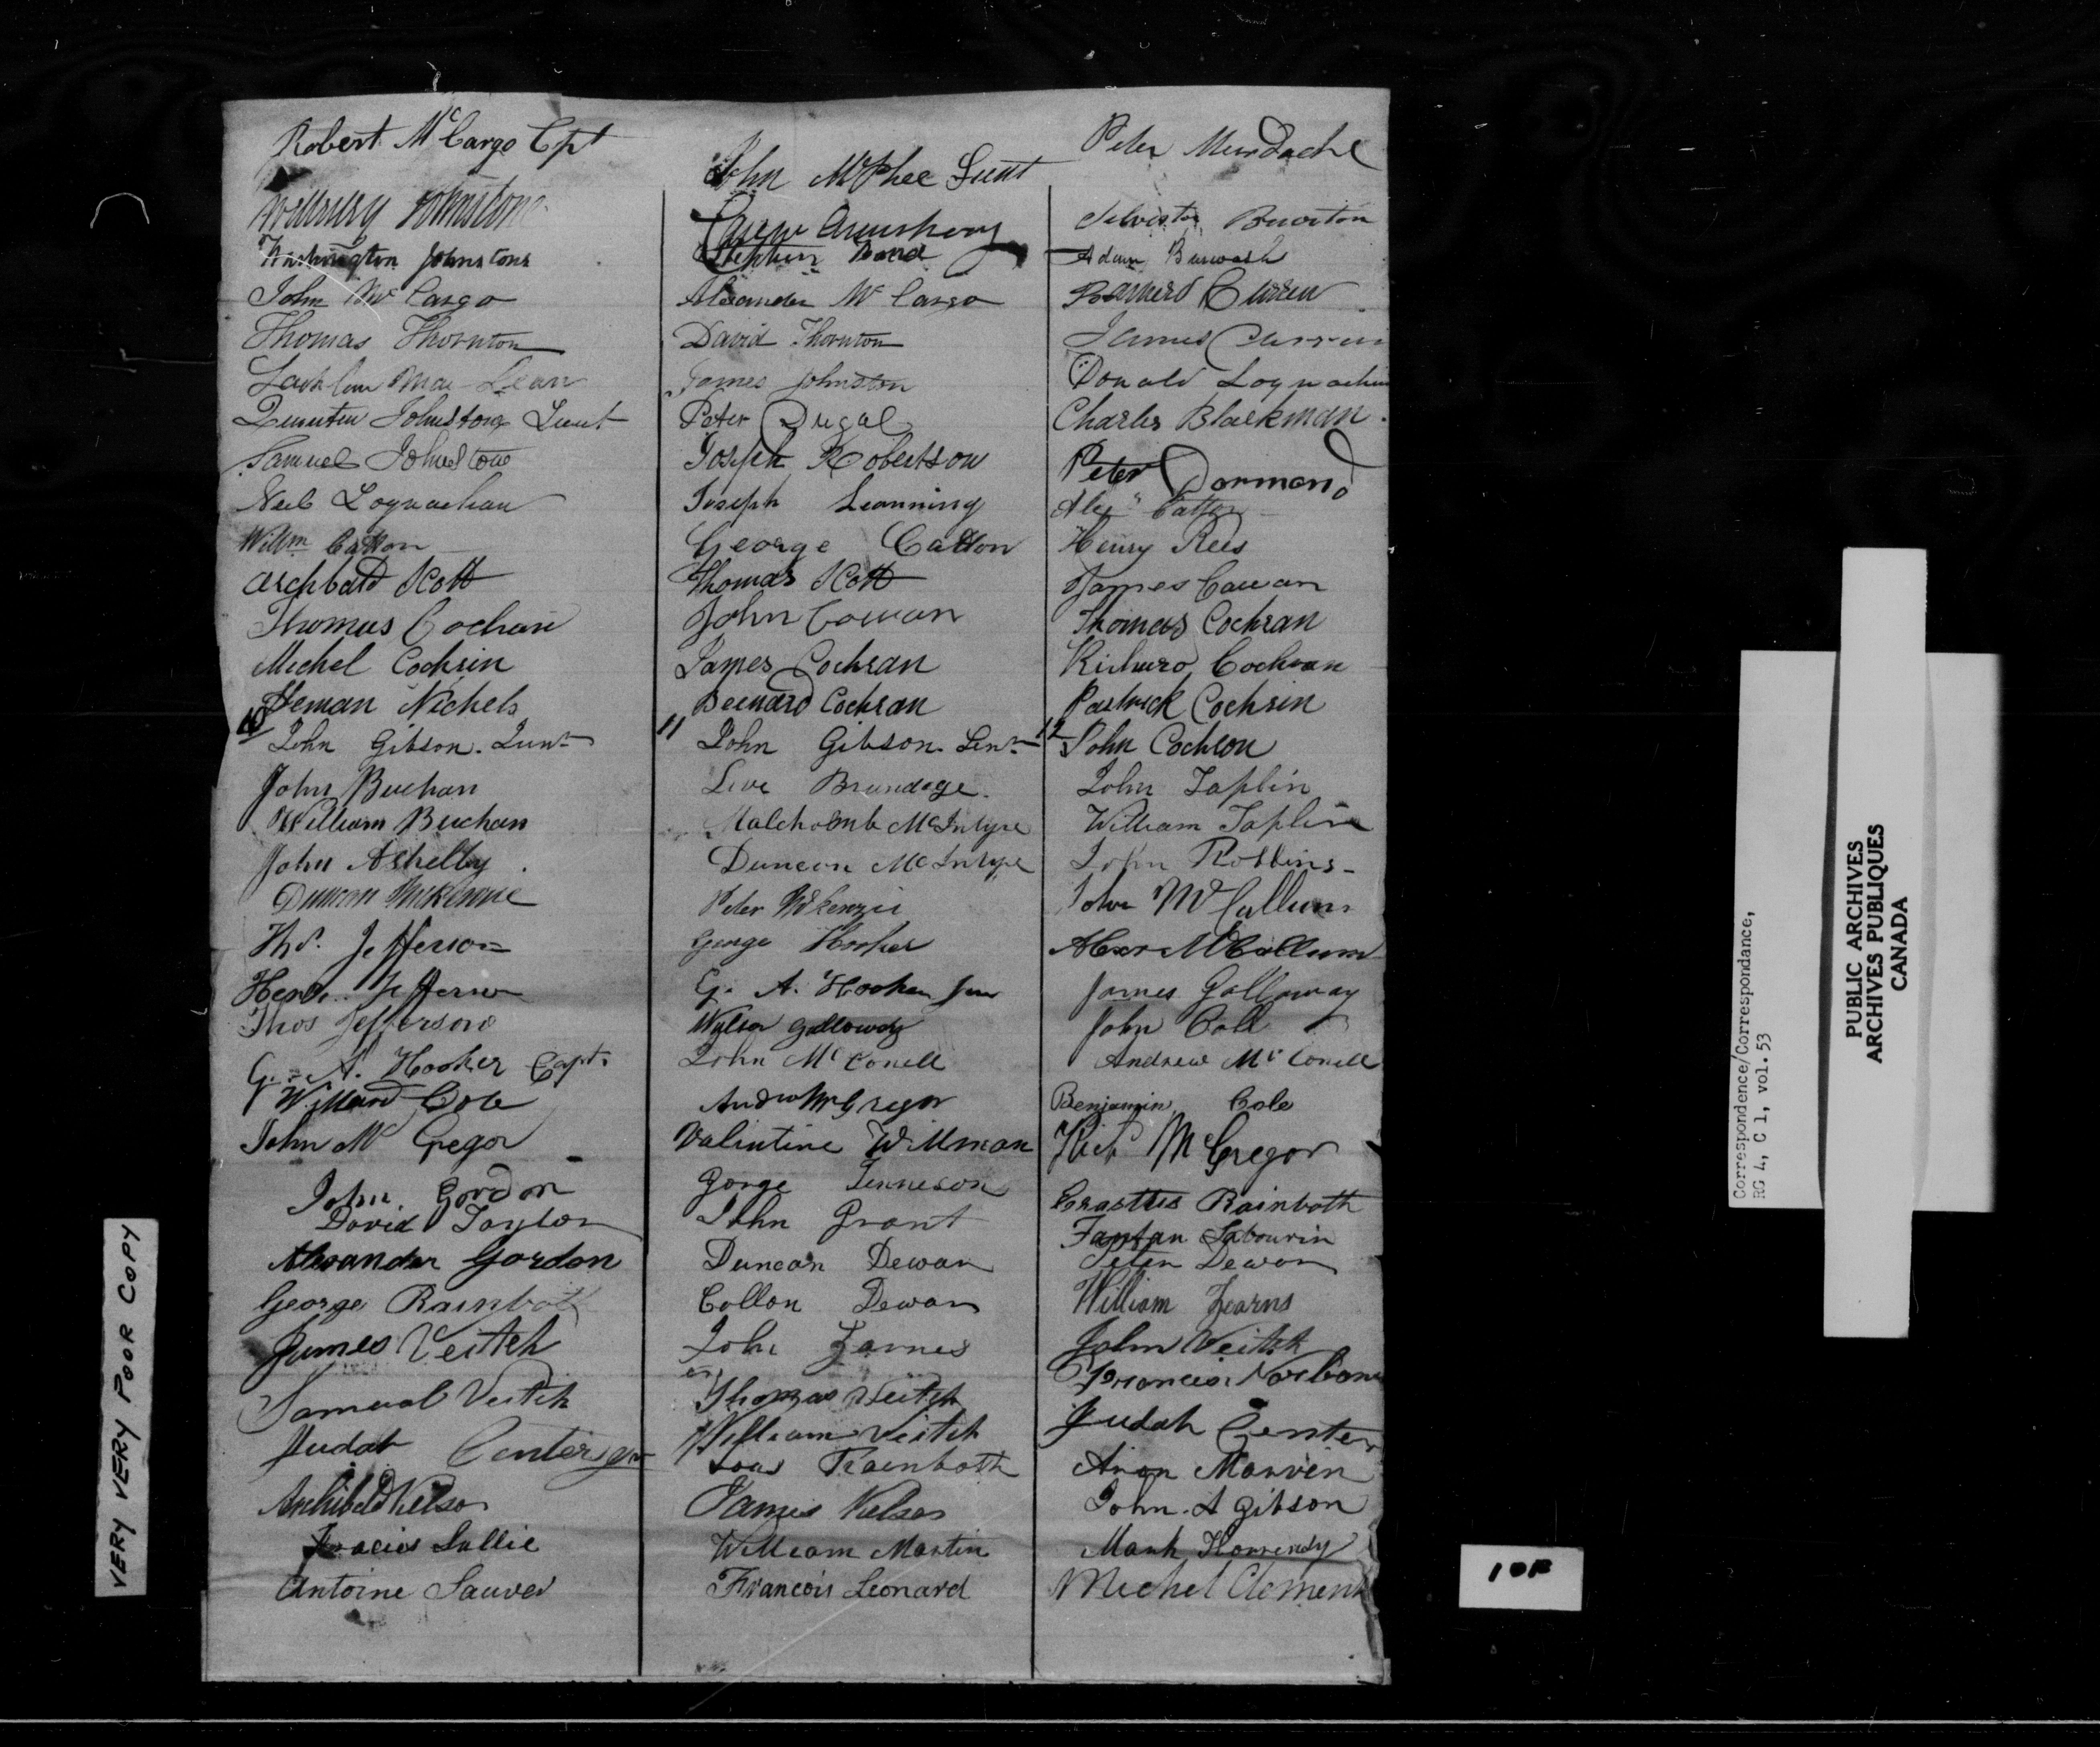 Robert McCargo Cpt
Johnstone
Washington Johnstone
John McCargo
Thomas Thornton
Lachlan Mac Lean
Quintin Johnstone Lieut
Samuel Johnstone
Neil Loqnachan
Willm Catton
Archbald Scott
Thomas Cochran
Michel Cochrin
Heman Nichels
10
John Gibson. Lunt
John Buchan
William Buchan
John Ashelby
Duncan McKennie
Thos. Jefferson
Jefferson
Thos Jefferson
G. A. Hooker Capt.
Willard Cole
John Mc Gregor
John Gordon
David Taylor
Alexander Gordon
George Rainboth
James Veitch
Samual Veitch
Judah Center
Archibald Kelso
Lallie
Antoine Sauve
John McPhee Lieut
Armstrong
Stephen
Alexander McCargo
David Thornton
James Johnston
Peter Dugal
Joseph Robertson
Joseph Leanning
George Catton
Thomas Scott
John Cowan
James Cochran
Bernard Cochran
11
John Gibson. Lent
Live Brundage.
Malcholmb McIntyre
Duncan McIntyre
Peter McKenzie
George Hooker
G. A. Hooker Jun
Galloway
John McConell
Andw McGregor
Valintine Willman
Gorge Tenneson
John Grant
Duncan Dewar
Collon Dewar
John
Thomas Veitch
William Veitch
Rainboth
James Kelso
William Martin
Francois Leonard
Peter Murdache
Silvester Buorton
Adam Burwash
Barnerd Curren
James Curren
Donald Loqnachan
Charles Blackman.
Peter Dormond
Alexr Catton
Henry Rees
James Cowan
Thomas Cochran
Richard Cochran
Patrick Cochrin
12
John Cochron
John Taplin
William Taplin
John Robbins
John McCallum
Alexr McCallum
James Galloway
John Coll
Andrew McConell
Benjamin Cole
McGregor
Erasttus Rainboth
Labourin
Peter Dewar
William Fearns
John Veitch
Francis
Judah Center
Marvin
John. A Gibson
Mark
Michel Clement
VERY VERY POOR COPY
10F
Correspondence/Correspondance,
RG 4, C 1, vol. 53
PUBLIC ARCHIVES
ARCHIVES PUBLIQUES
CANADA